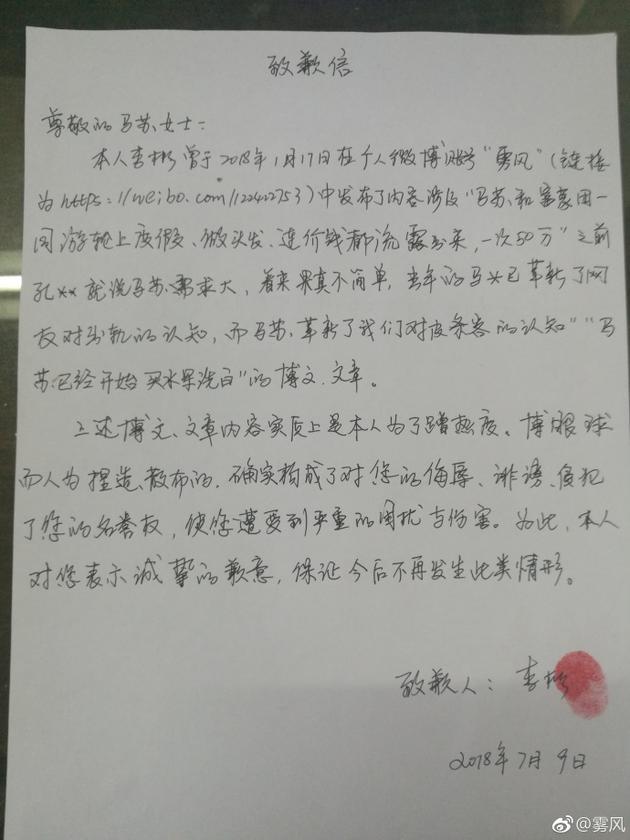 致歉信
尊敬的马苏女士:
本人李彬曾于2018年1月17日在个人微博账号"雾风"(链接
为https://weibo.com/122422753)中发布了内容涉及"马苏和富豪团一
同游轮上度假、做头发、连价钱都流露出来,一次50万""之前
孔**就说马苏需求大,看来果真不简单,当年的马*已革新了网
友对出轨的认知,而马苏革新了我们对皮条客的认知""马
苏已经开始买水果洗白"的博文、文章。
上述博文、文章内容实质上是本人为了蹭热度、博眼球
而人为捏造、散布的,确实构成了对您的侮辱、诽谤、侵犯
了您的名誉权,使您遭受到严重的困扰与伤害。为此,本人
对您表示诚挚的歉意,保证今后不再发生此类情形。
致歉人:李彬
2018年7月9日
@雾风